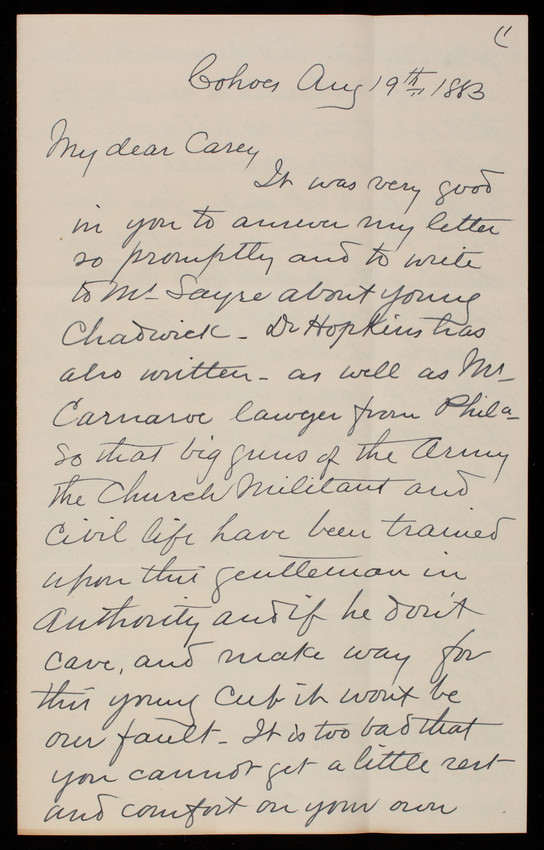 Cohoes Aug 19th 1883
My dear Carey
It was very good
in you to answer my letter
so promptly and to write
to Mr Sayre about young
Chadwick - Dr Hopkins has
also written - as well as Mr
lawyer from Phila-
So that big guns of the Army
the Church Militant and
Civil life have been trained
upon this gentleman in
Authority and if he don't
cave, and make way for
this young Cub it wont be
our fault - It is too bad that
you cannot get a little rest
and comfort on your own